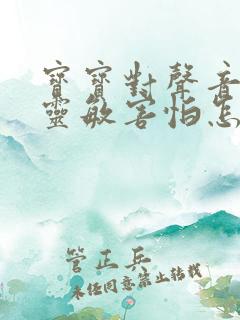 寶寶對聲音
靈敏害怕怎
管正兵
未經同意禁止轉載